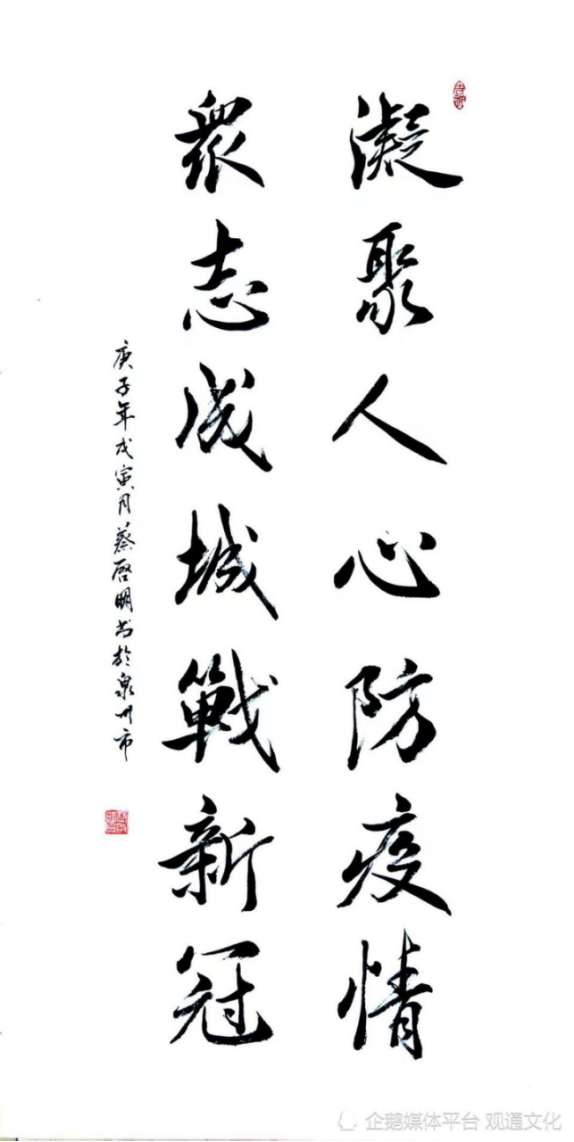 凝聚人心防疫情
衆志成城戰新冠
庚子年戊寅月蔡啓明书於泉州市
企鹅媒体平台 观通文化